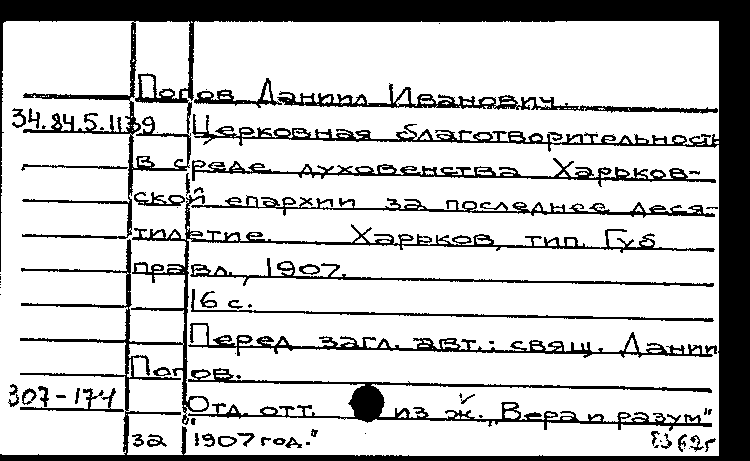 Попов, Даниил Иванович.
34.84.5.1139 Церковная благотворительность
в среде духовенства Харьков-
ской епархии за последнее деся-
тилетие. Харьков, тип. Губ.
правл., 1907.
16 с.
Перед загл. авт.: свящ. Даниил
Попов.
307-174 Отд. отт. из ж. „Вера и разум"
за "1907 год."